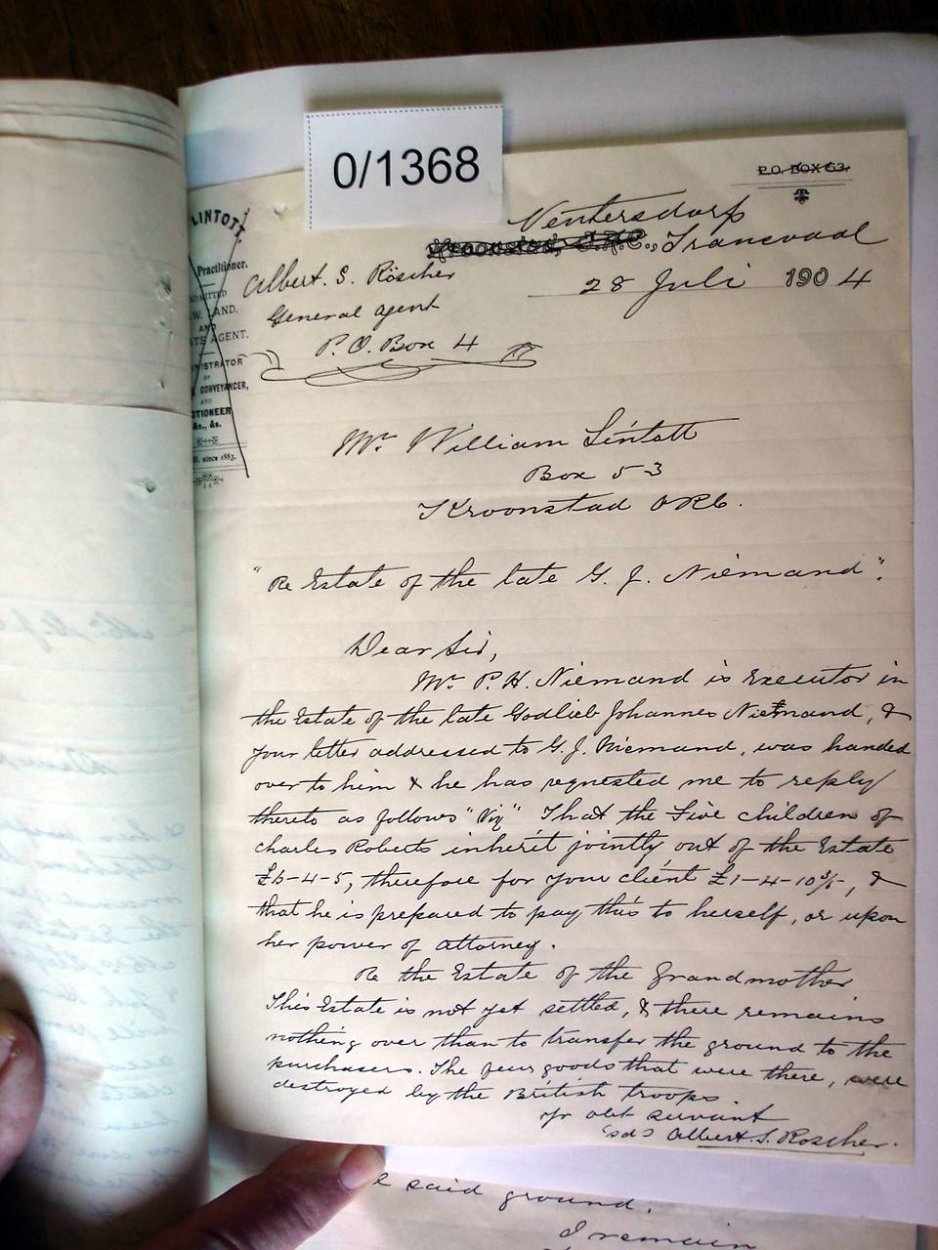 0/1368
P.O. BOX 63.
LINTOTT,
Practitioner.
ADMITTED
LAW, LAND,
AND
ESTATE AGENT.
ADMINISTRATOR
OF
CONVEYANCER,
AND
AUCTIONEER
&c., &c.
since 1883.
Ventersdorp
Transvaal
28 Juli 1904
Albert. S. Röscher
General agent
P.O. Box 4
Mr. William Lintott
Box 53
Kroonstad ORC.
"Re Estate of the late G. J. Niemand".
Dear Sir,
Mr. P. H. Niemand is Executor in
the Estate of the late Godlieb Johannes Niemand, &
your letter addressed to G. J. Niemand, was handed
over to him & he has requested me to reply
thereto as follows "Viz" That the Five children of
Charles Roberts inherit jointly out of the Estate
£6-4-5, therefore for your client £1-4-10 3/5-, &
that he is prepared to pay this to herself, or upon
her power of attorney.
Re the Estate of the Grandmother
This Estate is not yet settled, & there remains
nothing over than to transfer the ground to the
purchasers. The few goods that were there, were
destroyed by the British troops.
Yr obt servant
(sd) Albert. S. Röscher.
said ground.
I remain